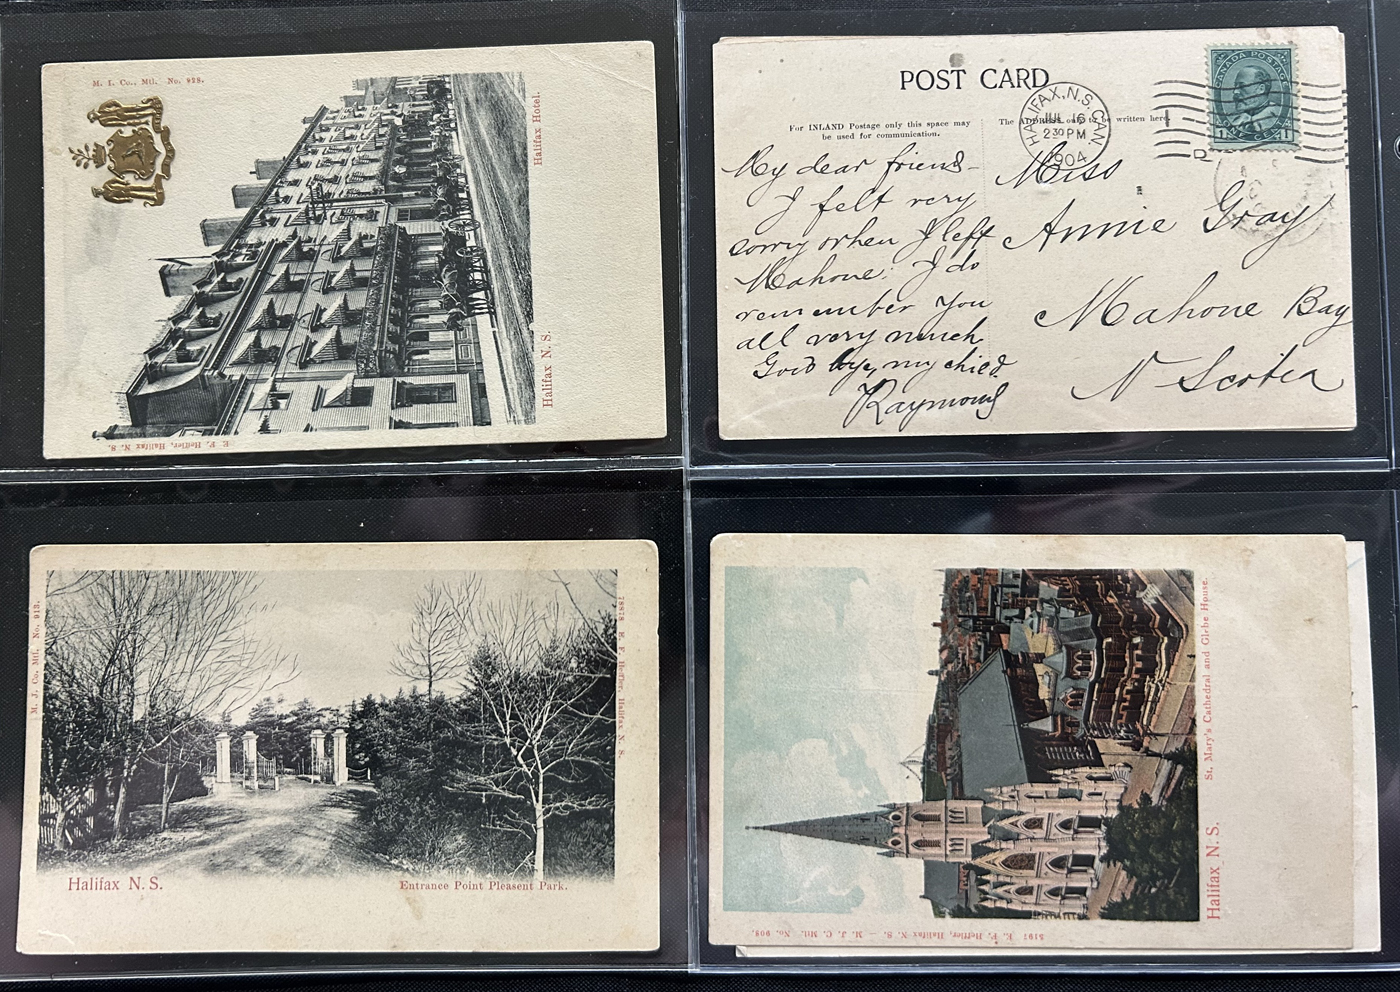 M. I. Co., Mtl. No. 828.
Halifax Hotel.
Halifax N. S.
E. F. Heffler, Halifax N. S.
POST CARD
For INLAND Postage only this space may
be used for communication.
The ADDRESS only to be written here.
HALIFAX, N.S. CAN.
JUL 16
2 30 PM
1904
CANADA POSTAGE
ONE CENT
1 1
My dear friend-
I felt very
sorry when I left
Mahone. I do
remember you
all very much
Good bye, my child
Raymond
Miss
Annie Gray
Mahone Bay
N Scotia
M. J. Co. Mtl. No. 913.
78878 E. F. Heffler, Halifax N. S.
Halifax N. S.
Entrance Point Pleasent Park.
St. Mary's Cathedral and Glebe House.
Halifax N. S.
5197 E. F. Heffler, Halifax N. S. — M. J. C. Mtl. No. 909.